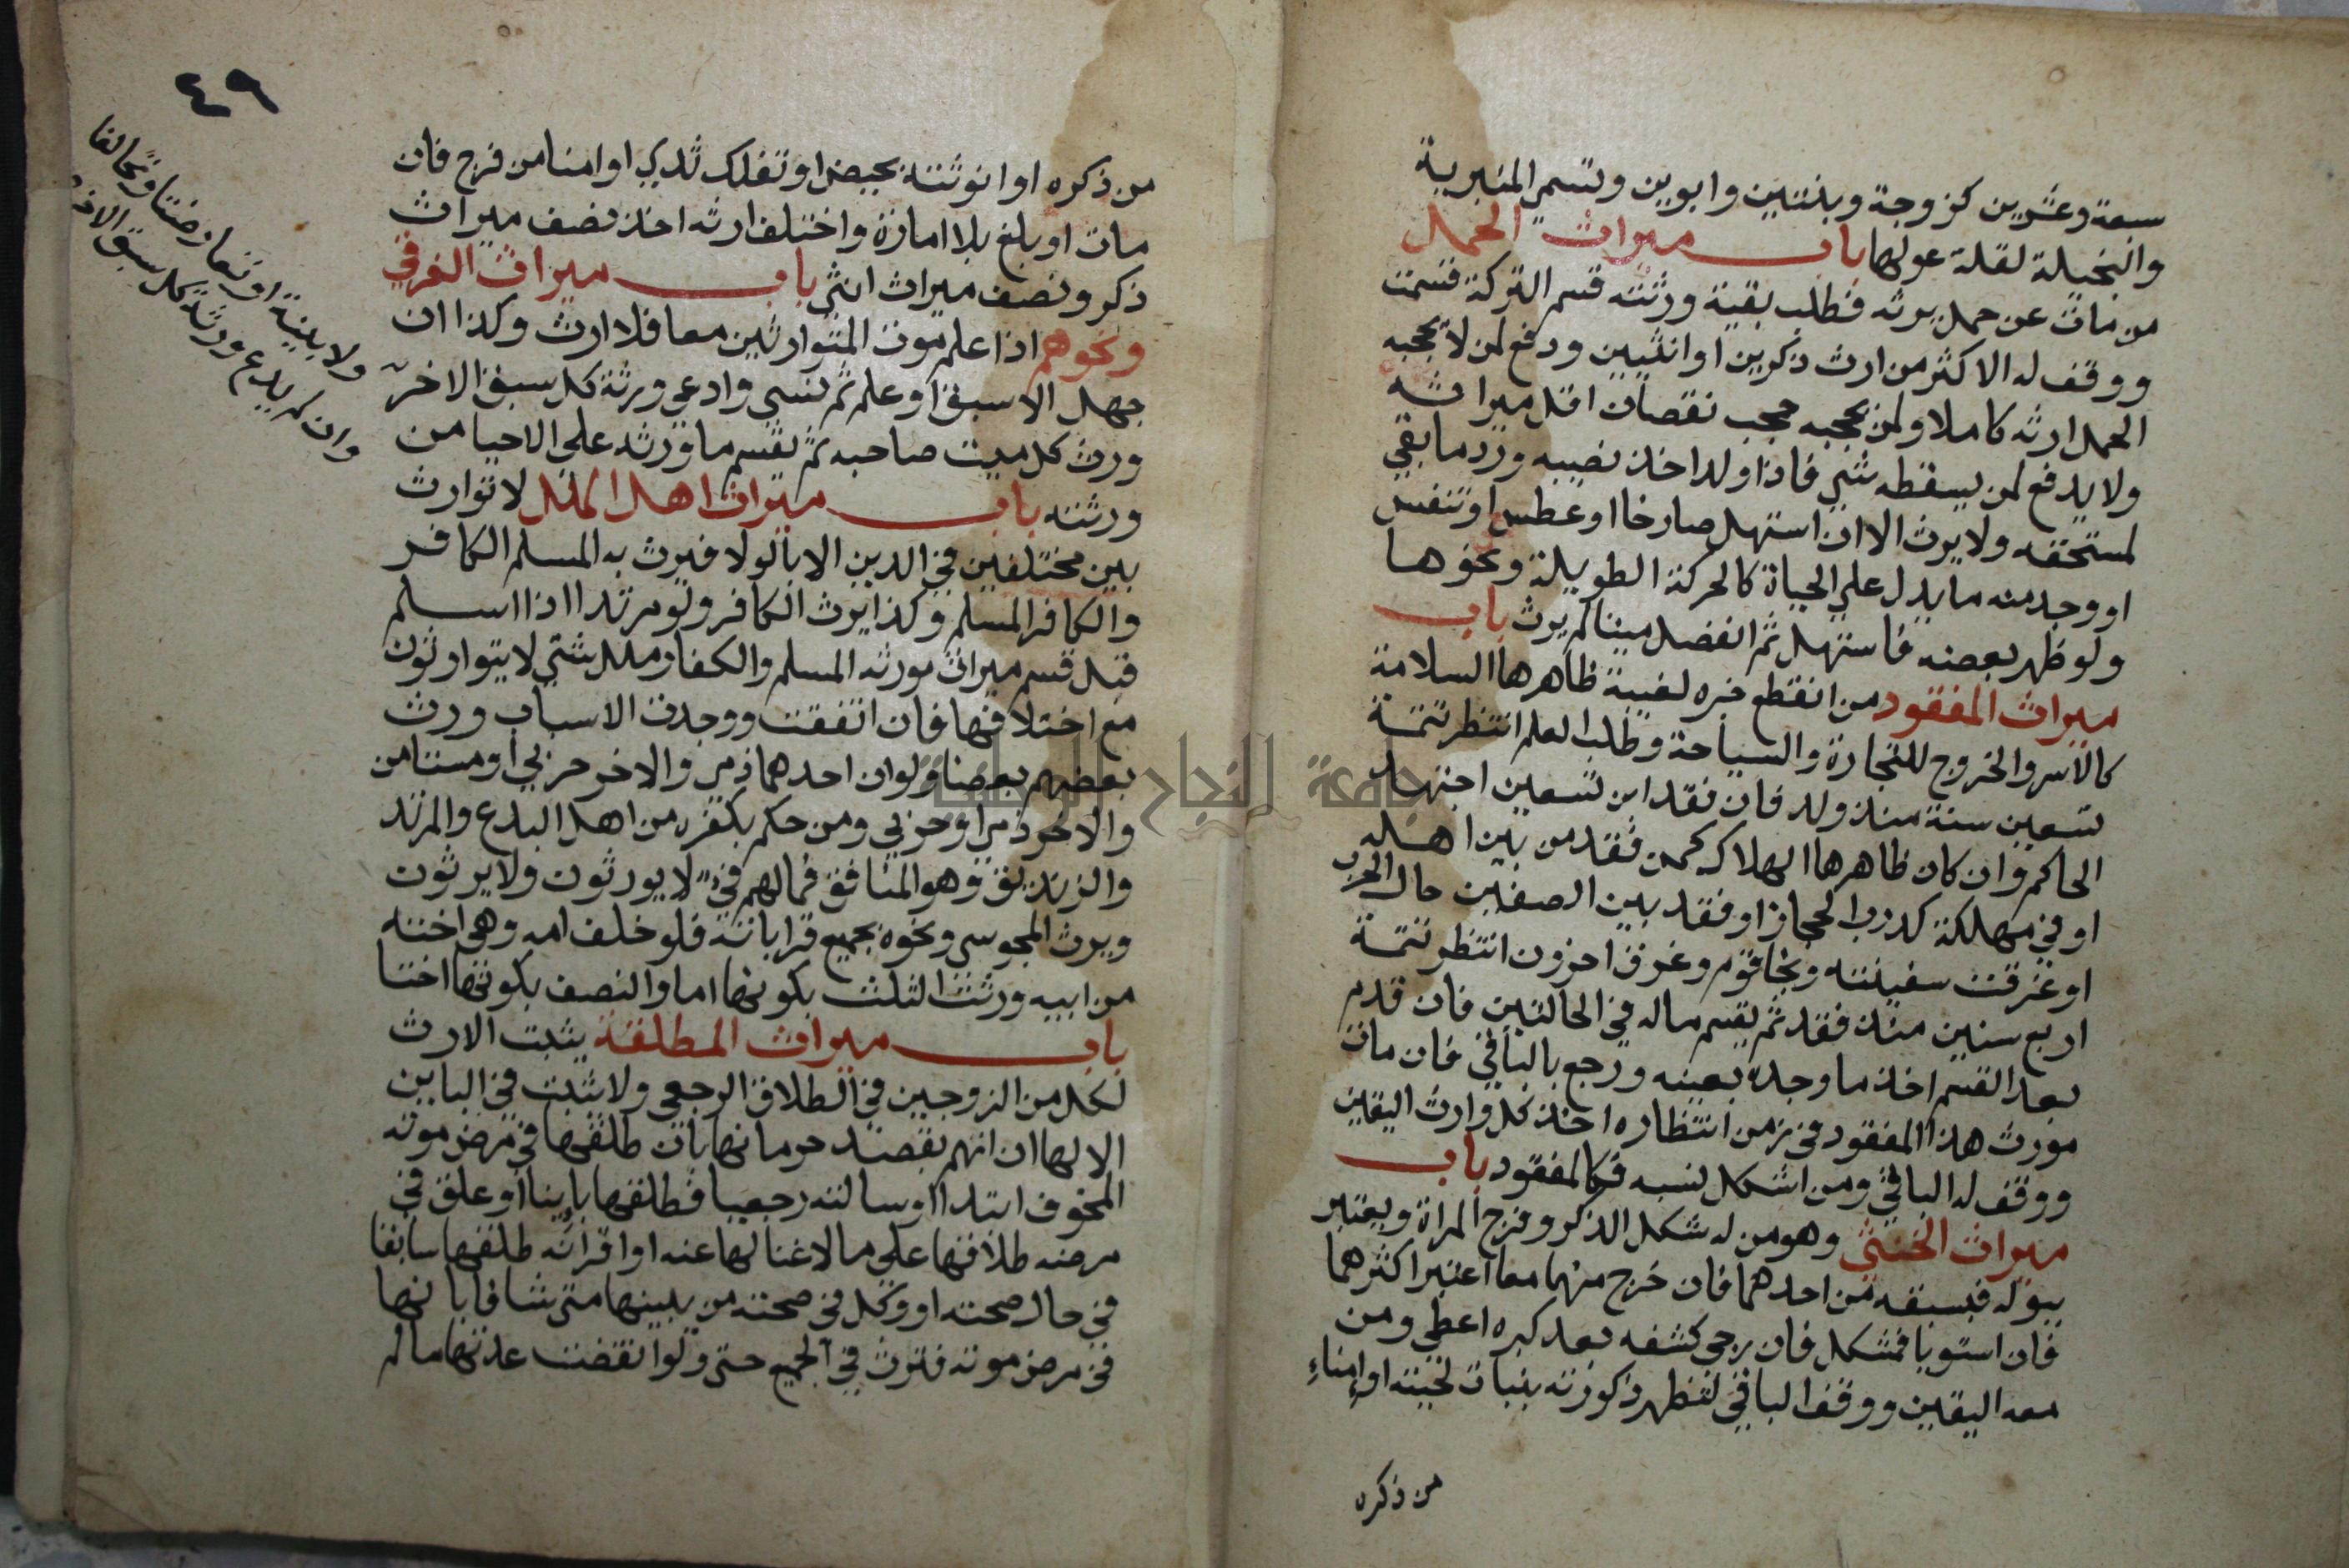 سبعة وعشرين كزوجة وبنتين وابوين وتسمي المنبرية
والبخيلة لقلة عولها باب ميراث الحمل
من مات عن حمل يرثه فطلب بقية ورثته قسم التركة قسمت
ووقف له الاكثر من ارث ذكرين او انثيين ودفع لمن لا يحجبه
الحمل ارثه كاملا ولمن يحجبه حجب نقصان اقل ميراثه
ولا يدفع لمن يسقطه شي فاذا ولد اخذ نصيبه ورد ما بقي
لمستحقه ولا يرث الا ان استهل صارخا او عطس او تنفس
او وجد منه ما يدل علي الحياة كالحركة الطويلة ونحوها
ولو ظهر بعضه فاستهل ثم انفصل ميتا لم يرث باب
ميراث المفقود من انقطع خبره لغيبة ظاهرها السلامة
كالاسر والخروج للتجارة والسياحة وطلب العلم انتظر تتمة
تسعين سنة منذ ولد فان فقد ابن تسعين اجتهد
الحاكم وان كان ظاهرها الهلاك كمن فقد من بين اهله
او في مهلكة كدرب الحجاز او فقد بين الصفين حال الحرب
او غرقت سفينته ونجا قوم وغرق اخرون انتظر تتمة
اربع سنين منذ فقد ثم يقسم ماله في الحالتين فان قدم
بعد القسم اخذ ما وجده بعينه ورجع بالباقي فان مات
مورث هذا المفقود في زمن انتظاره اخذ كل وارث اليقين
ووقف له الباقي ومن اشكل نسبه فكالمفقود باب
ميراث الخنثي وهو من له شكل الذكر وفرج المراة ويعتبر
ببوله فبسبقه من احدهما فان خرج منهما معا اعتبر اكثرهما
فان استويا فمشكل فان رجي كشفه بعد كبره اعطي ومن
معه اليقين ووقف الباقي لتظهر ذكورته بنبات لحيته او امناء
من ذكره
٤٩
من ذكره او انوثته بحيض او تفلك ثدي او امنا من فرج فان
مات او بلغ بلا امارة واختلف ارثه اخذ نصف ميراث
ذكر ونصف ميراث انثي باب ميراث الغرقي
ونحوهم اذا علم موت المتوارثين معا فلا ارث وكذا ان
جهل الاسبق او علم ثم نسي وادعي ورثة كل سبق الاخر
ورث كل ميت صاحبه ثم يقسم ما ورثه علي الاحيا من
ورثته باب ميراث اهل الملل لا توارث
بين مختلفين في الدين الا بالولا فيرث به المسلم الكافر
والكافر المسلم وكذا يرث الكافر ولو مرتدا اذا اسلم
قبل قسم ميراث مورثه المسلم والكفار ملل شتي لا يتوارثون
مع اختلافها فان اتفقت ووجدت الاسباب ورث
بعضهم بعضا ولو ان احدهما ذمي والاخر حربي او مستامن
والاخر ذمي او حربي ومن حكم بكفره من اهل البدع والمرتد
والزنديق وهو المنافق فمالهم فيء لا يورثون ولا يرثون
ويرث المجوسي ونحوه بجميع قراباته فلو خلف امه وهي اخته
من ابيه ورثت الثلث بكونها اما والنصف بكونها اختا
باب ميراث المطلقة يثبت الارث
لكل من الزوجين في الطلاق الرجعي ولا يثبت في الباين
الا لها ان اتهم بقصد حرمانها بان طلقها في مرض موته
المخوف ابتدا او سالته رجعيا فطلقها باينا او علق في
مرضه طلاقها علي ما لا غنا لها عنه او اقر انه طلقها سابقا
في حال صحته او وكل في صحته من يبينها متي شا فابانها
في مرض موته فترث في الجميع حتي ولو انقضت عدتها ما لم
ولا بينة او تعارضتا وتحالفا
وان لم يدع ورثة كل سبق الاخر
جامعة النجاح الوطنية